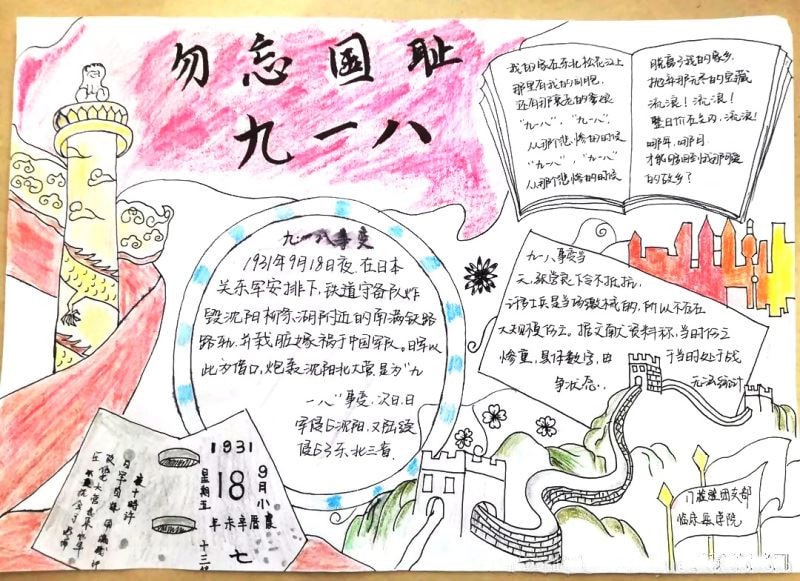 勿忘国耻
九一八
我的家在东北松花江上
那里有我的同胞
还有那衰老的爹娘
"九一八","九一八",
从那个悲惨的时候
"九一八","九一八"
从那个悲惨的时候
脱离了我的家乡
抛弃那无尽的宝藏
流浪!流浪!
整日价在关内,流浪!
哪年,哪月
才能够回到我那可爱
的故乡?
九一八事变
1931年9月18日夜,在日本
关东军安排下,铁道守备队炸
毁沈阳柳条湖附近的南满铁路
路轨,并栽赃嫁祸于中国军队。日军以
此为借口,炮轰沈阳北大营,是为"九
一八"事变。次日,日
军侵占沈阳,又陆续
侵占了东北三省.
九一八事变当
张学良下令不抵抗,
许多士兵是当场缴械的,所以不存在
据文献资料称,当时伤亡
惨重,具体数字,由于当时处于战
争状态,无法统计
1931
9月小
18
星期五
年未辛曆農
七
夜十時許
日军自爆
门诊医团支部
临床医学院